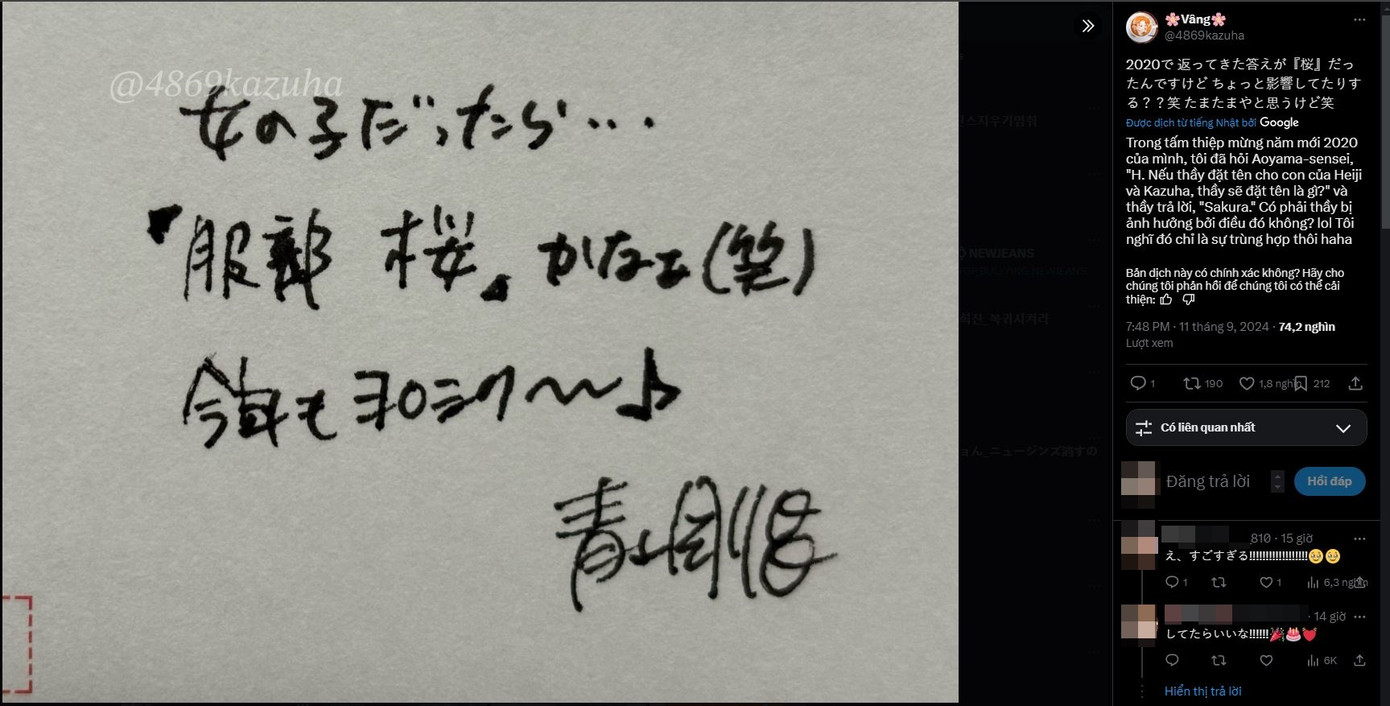 @4869kazuha
女の子だったら…
『服部 桜』かなぁ(笑)
今年もヨロシク〜〜♪
青山剛昌
🌸Vâng🌸
@4869kazuha
2020で 返ってきた答えが『桜』だっ
たんですけど ちょっと影響してたりす
る？？笑 たまたまやと思うけど笑
Được dịch từ tiếng Nhật bởi Google
Trong tấm thiệp mừng năm mới 2020
của mình, tôi đã hỏi Aoyama-sensei,
"H. Nếu thầy đặt tên cho con của Heiji
và Kazuha, thầy sẽ đặt tên là gì?" và
thầy trả lời, "Sakura." Có phải thầy bị
ảnh hưởng bởi điều đó không? lol Tôi
nghĩ đó chỉ là sự trùng hợp thôi haha
Bản dịch này có chính xác không? Hãy cho
chúng tôi phản hồi để chúng tôi có thể cải
thiện:
7:48 PM · 11 tháng 9, 2024 · 74,2 nghìn
Lượt xem
1 190 1,8 nghìn 212
Có liên quan nhất
Đăng trả lời
Hồi đáp
810 · 15 giờ
え、すごすぎる!!!!!!!!!!!!!!!!!!🥹🥹
1 1 6,3 nghìn
· 14 giờ
してたらいいな!!!!!!🎉🎂💓
6K
Hiển thị trả lời
NEWJEANS